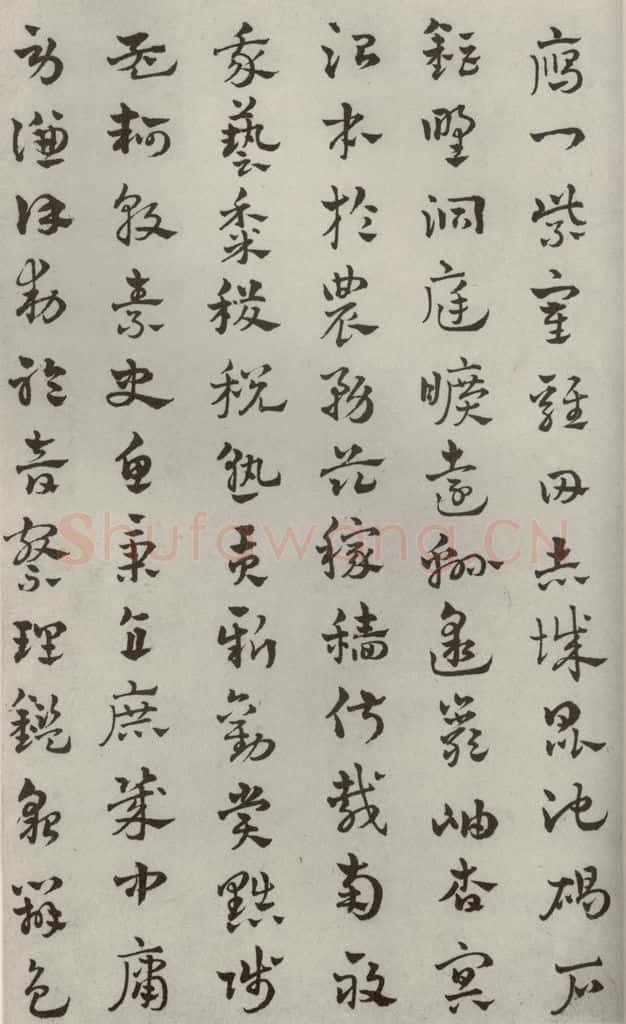 鴈門紫塞雞田赤城昆池碣石
鉅野洞庭曠遠緜邈巖岫杳冥
治本於農務茲稼穡俶載南畝
我藝黍稷稅熟貢新勸賞黜陟
孟軻敦素史魚秉直庶幾中庸
勞謙謹勑聆音察理鑑皃辨色
Shufawang.CN